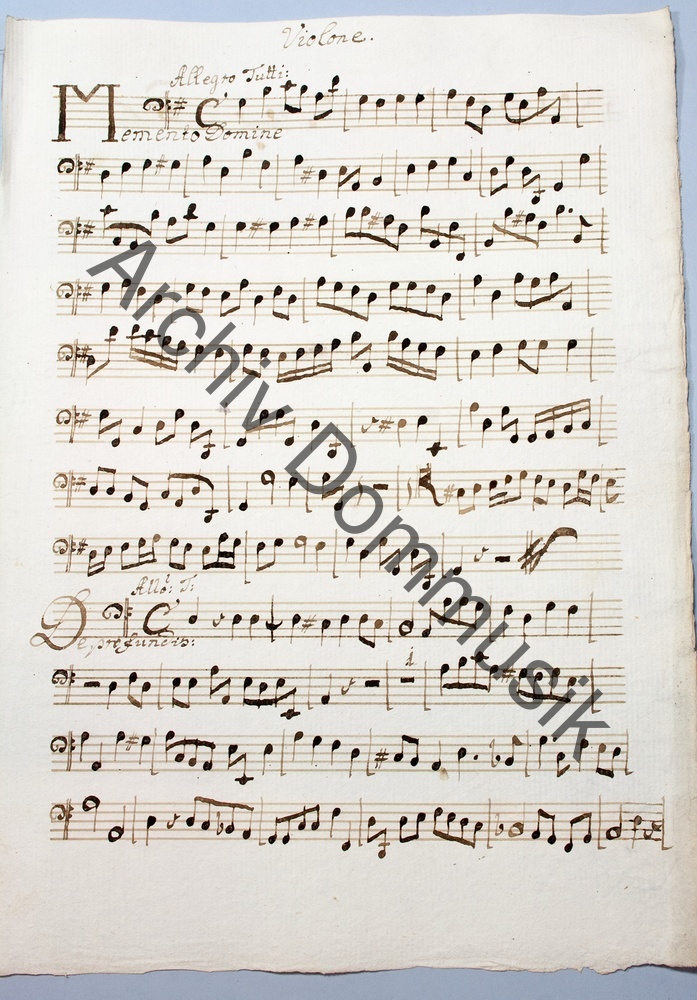 Violone.
Allegro Tutti:
Memento Domine
Allo: T:
De profundis:
1.
Archiv Dommusik